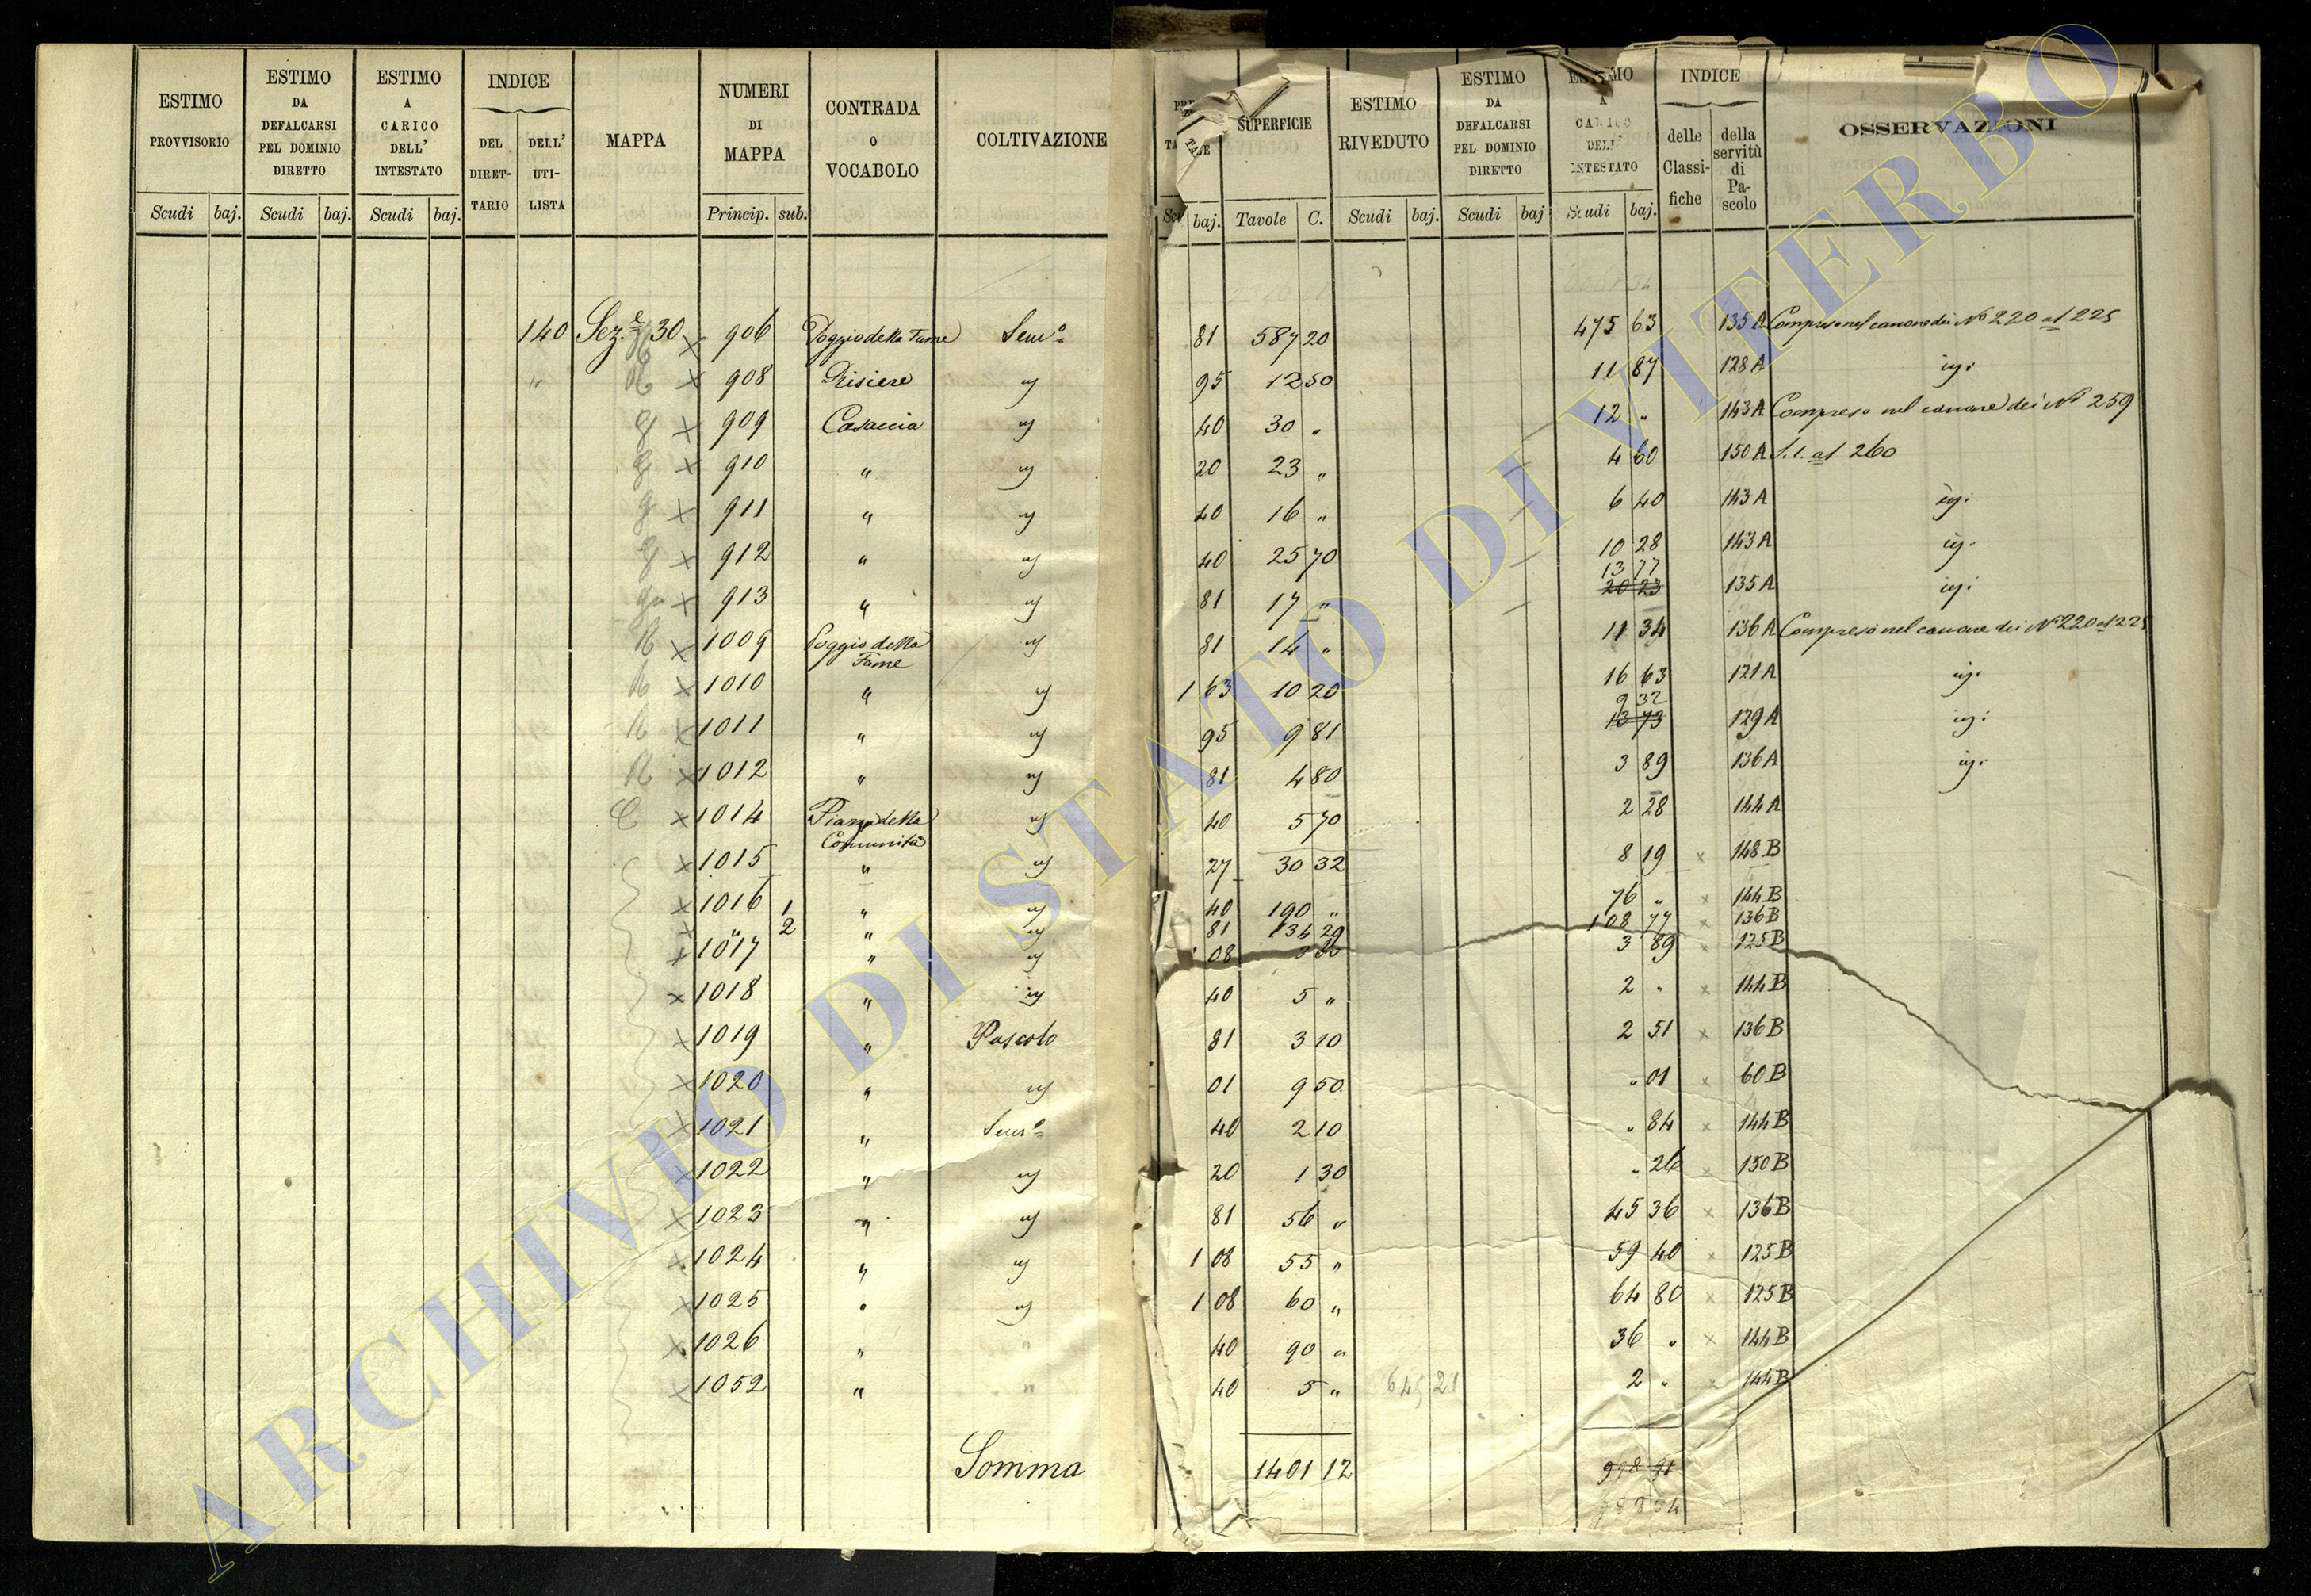 ESTIMO PROVVISORIO | ESTIMO DA DEFALCARSI PEL DOMINIO DIRETTO | ESTIMO A CARICO DELL' INTESTATO | INDICE DEL DIRETTARIO | DELL' UTILISTA | MAPPA | NUMERI DI MAPPA | CONTRADA o VOCABOLO | COLTIVAZIONE | SUPERFICIE | ESTIMO RIVEDUTO | ESTIMO DA DEFALCARSI PEL DOMINIO DIRETTO | A DELL' INTESTATO | INDICE delle Classifiche | della servitù di Pascolo | OSSERVAZIONI
Scudi | baj. | Scudi | baj. | Scudi | baj. | Princip. | sub. | baj. | Tavole | C. | Scudi | baj. | Scudi | baj | Scudi | baj.
140 Sez.e 30 × 906 Poggio della Fame Sem.o 81 587 20 475 63 135 A Compreso nel canone dei No 220 al 225
" × 908 Risiere " 95 12 50 11 87 128 A
× 909 Casaccia 40 30 " 12 " 143 A Compreso nel canone dei No 259
× 910 " 20 23 " 4 60 150 A al 260
× 911 " 40 16 " 6 40 143 A
× 912 " 40 25 70 10 28 143 A
13 77
× 913 " 81 17 " 20 23 135 A
× 1009 Poggio della Fame 81 14 " 11 34 136 A Compreso nel canone dei No 220 al 225
× 1010 " 1 63 10 20 16 63 121 A
9 32
× 1011 " 95 9 81 13 73 129 A
× 1012 " 81 4 80 3 89 136 A
C × 1014 Piazza della Comunità 40 5 70 2 28 144 A
× 1015 " 27 30 32 8 19 × 148 B
× 1016 1 " 40 190 " 76 " × 144 B
× " 2 " 81 134 29 108 77 × 136 B
× 1017 " 1 08 3 60 3 89 × 125 B
× 1018 " 40 5 " 2 " × 144 B
× 1019 " Pascolo 81 3 10 2 51 × 136 B
× 1020 " 01 9 50 " 01 × 60 B
× 1021 " Sem.o 40 2 10 " 84 × 144 B
× 1022 " 20 1 30 " 26 × 150 B
× 1023 " 81 56 " 45 36 × 136 B
× 1024 " 1 08 55 " 59 40 × 125 B
× 1025 " 1 08 60 " 64 80 × 125 B
× 1026 " " 40 90 " 36 " × 144 B
× 1052 " " 40 5 " 645 21 2 " × 144 B
Somma 1401 12
ARCHIVIO DI STATO DI VITERBO